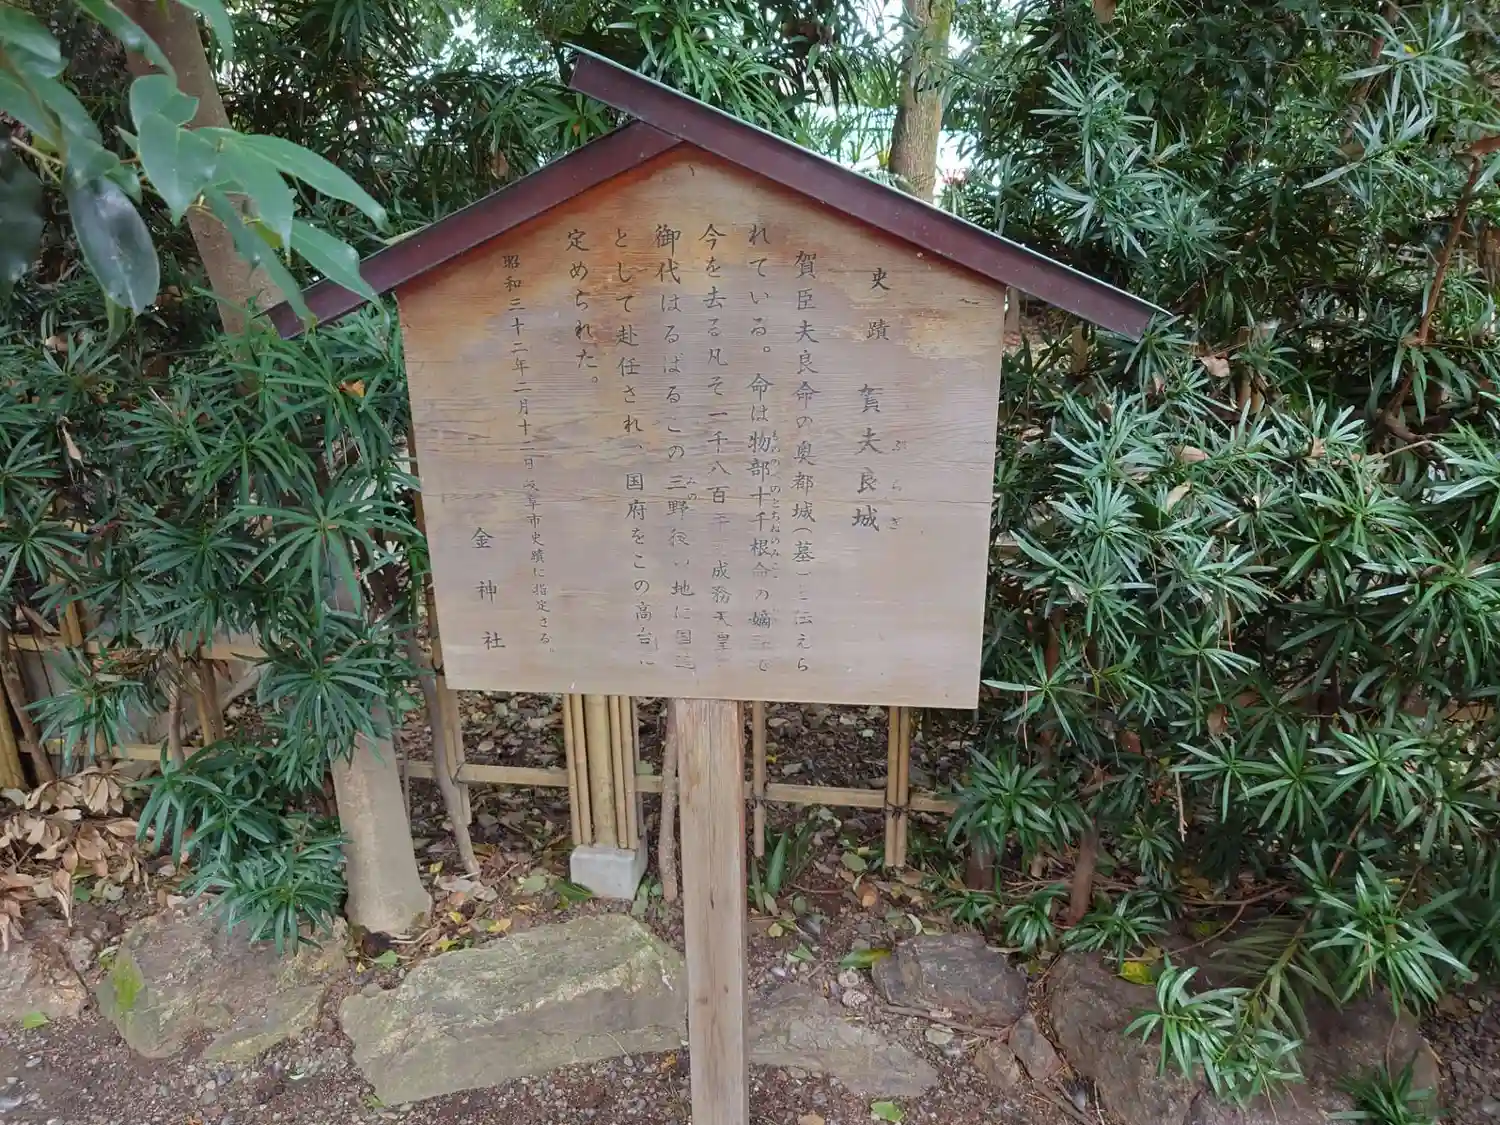 史蹟 賀夫良城
ぶらぎ
賀臣夫良命の奥都城(墓)と伝えら
れている。命は物部十千根命の嫡
もののべのとちねのみこと
今を去る凡そ一千八百年 成務天皇
御代はるばるこの三野後の地に国造
みの
として赴任され、国府をこの高台に
定められた。
昭和三十二年二月十二日 岐阜市史蹟に指定さる。
金神社